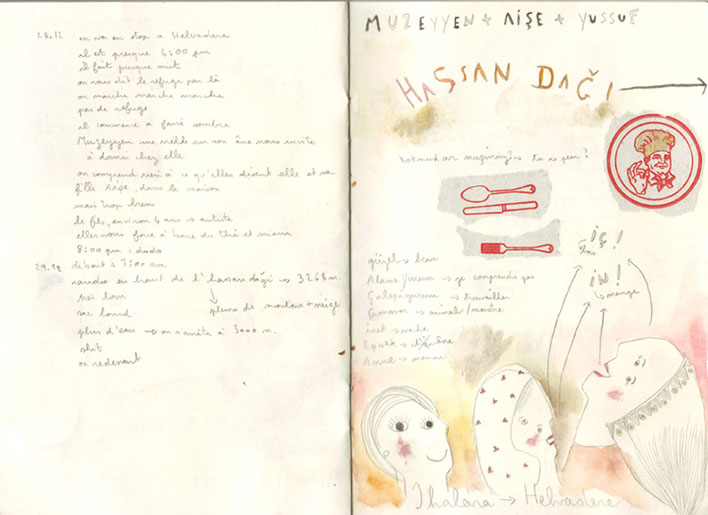 28.12
on va en stop a Helvadere
il est presque 4:00 pm
il fait presque nuit
on nous dit le refuge par là
on marche marche marche
pas de refuge
il commence à faire sombre
Muzeyyen une meldde sur son âne nous invite
à dormir chez elle
on comprend rien à ce qu'elles disent elle et sa
fille Aişe, dans la maison
mais trop bien
le fils, environ 4 ans → autiste
elles nous force à boire du thé et miam
8:00 pm : dodo
29.12
debout à 7:00 am
rando en haut de l'hasan daği → 3268 m.
très loin
sac lourd
pleins de moutons + neige
plus d'eau → on s'arrête à 3000 m.
shit
on redescend
MUZEYYEN + AIŞE + YUSSUF
HASSAN DAĞI →
kokmuk an musunuz? → tu as peur?
iç!
in!
↳ mange
güzel → beau
Alamıyurum → je comprends pas
Çalışıyurum → travailler
→ animal / monstre
inek → vache
Epsek → l'âne
Anne → maman
Ihalara → Helvadere